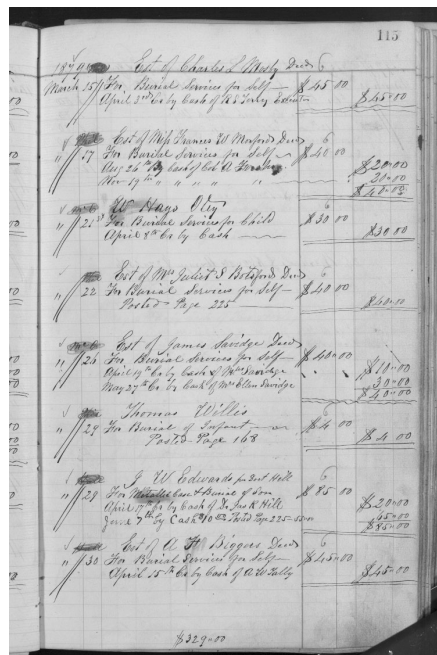 115
Est of Charles L Mosby Decd 6
March 15 For Burial Services for Self $45 00
April 3rd Cr by Cash of R S Terry $45-00
Est of Miss Frances W Morford Decd 6
" 17 For Burial Services for Self $40 00
Aug 26th By Cash of $20-00
Nov 19th " " " " " 20-00
$40-00
W Hays Otey 6
" 21st For Burial Services for Child $30 00
April 8th Cr by Cash $30 00
Est of Mrs Juliet S Botsford Decd 6
" 22 For Burial Services for Self $40 00
Posted Page 225 $40-00
Est of James Savidge Decd 6
" 26 For Burial Services for Self $40-00
April 19th Cr by Cash of Mrs Savidge $10-00
May 27th Cr by Cash of Mrs Ellen Savidge 30-00
$40-00
Thomas Willis 6
" 29 For Burial of Infant $4 00
Posted Page 168 $4 00
J W Edwards 6
" 29 For Metallic Case & Burial of Son $85 00
April 17th Cr by Cash of Dr Jas R Hill $20-00
June 7th by Cash Posted Page 225
$85-00
Est of A Biggers Decd 6
" 30 For Burial Services for Self $45-00
April 15th Cr by Cash of A W Tally $45-00
$329-00